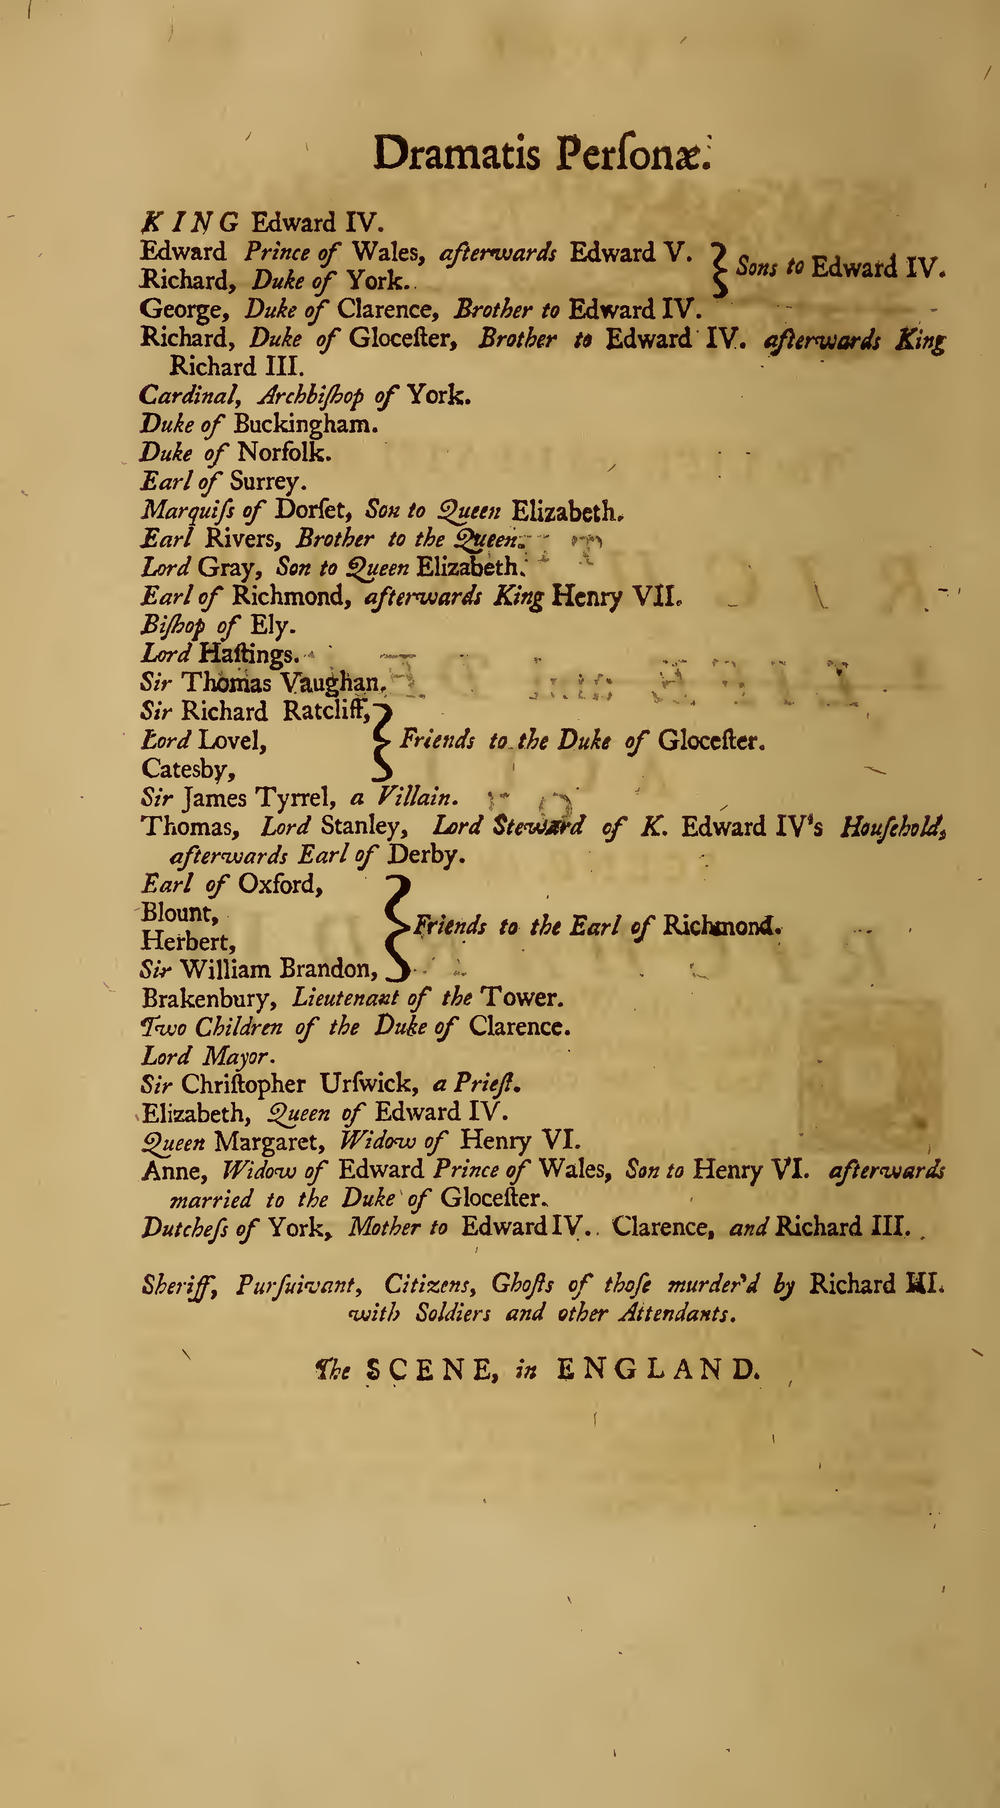 Dramatis Perſonæ.
KING Edward IV.
Edward Prince of Wales, afterwards Edward V.
Richard, Duke of York.
Sons to Edward IV.
George, Duke of Clarence, Brother to Edward IV.
Richard, Duke of Gloceſter, Brother to Edward IV. afterwards King
Richard III.
Cardinal, Archbiſhop of York.
Duke of Buckingham.
Duke of Norfolk.
Earl of Surrey.
Marquiſs of Dorſet, Son to Queen Elizabeth.
Earl Rivers, Brother to the Queen.
Lord Gray, Son to Queen Elizabeth.
Earl of Richmond, afterwards King Henry VII.
Biſhop of Ely.
Lord Haſtings.
Sir Thomas Vaughan.
Sir Richard Ratcliff,
Lord Lovel,
Catesby,
Friends to the Duke of Gloceſter.
Sir James Tyrrel, a Villain.
Thomas, Lord Stanley, Lord Steward of K. Edward IV's Houſehold,
afterwards Earl of Derby.
Earl of Oxford,
Blount,
Herbert,
Sir William Brandon,
Friends to the Earl of Richmond.
Brakenbury, Lieutenant of the Tower.
Two Children of the Duke of Clarence.
Lord Mayor.
Sir Chriſtopher Urſwick, a Prieſt.
Elizabeth, Queen of Edward IV.
Queen Margaret, Widow of Henry VI.
Anne, Widow of Edward Prince of Wales, Son to Henry VI. afterwards
married to the Duke of Gloceſter.
Dutcheſs of York, Mother to Edward IV. Clarence, and Richard III.
Sheriff, Purſuivant, Citizens, Ghoſts of thoſe murder'd by Richard III.
with Soldiers and other Attendants.
The SCENE, in ENGLAND.